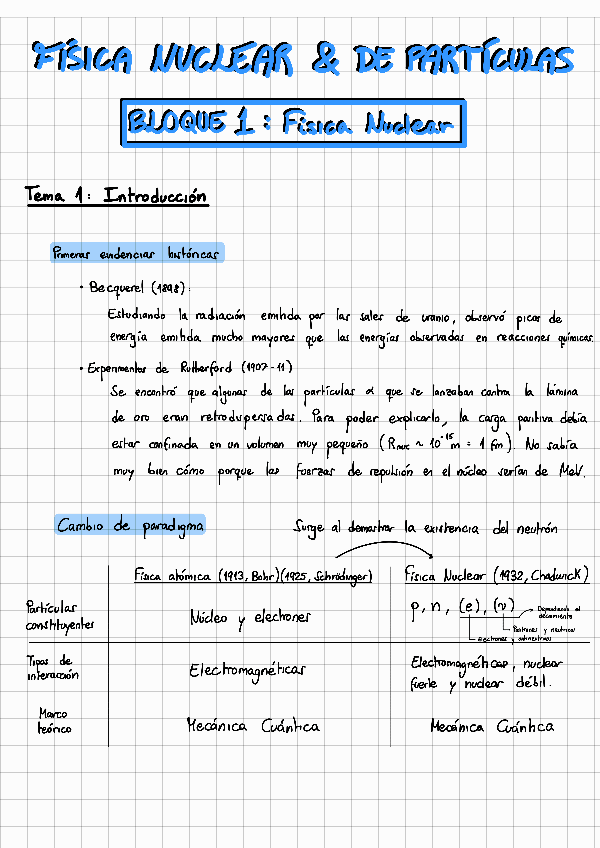 FÍSICA NUCLEAR & DE PARTÍCULAS
BLOQUE 1: Física Nuclear
Tema 1: Introducción
Primeras evidencias históricas
· Becquerel (1898):
Estudiando la radiación emitida por las sales de uranio, observó picos de
energía emitida mucho mayores que las energías observadas en reacciones químicas.
· Experimentos de Rutherford (1907-11)
Se encontró que algunas de las partículas α que se lanzaban contra la lámina
de oro eran retrodispersadas. Para poder explicarlo, la carga positiva debía
estar confinada en un volumen muy pequeño (Rnuc ~ 10⁻¹⁵m = 1 fm). No sabía
muy bien cómo porque las fuerzas de repulsión en el núcleo serían de MeV.
Cambio de paradigma
Surge al demostrar la existencia del neutrón
Física atómica (1913, Bohr)(1925, Schrödinger)
Física Nuclear (1932, Chadwick)
Partículas constituyentes
Núcleo y electrones
p, n, (e), (ν)
Dependiendo el decaimiento
Positrones y neutrinos
Electrones y antineutrinos
Tipos de interacción
Electromagnéticas
Electromagnéticas, nuclear
fuerte y nuclear débil.
Marco teórico
Mecánica Cuántica
Mecánica Cuántica